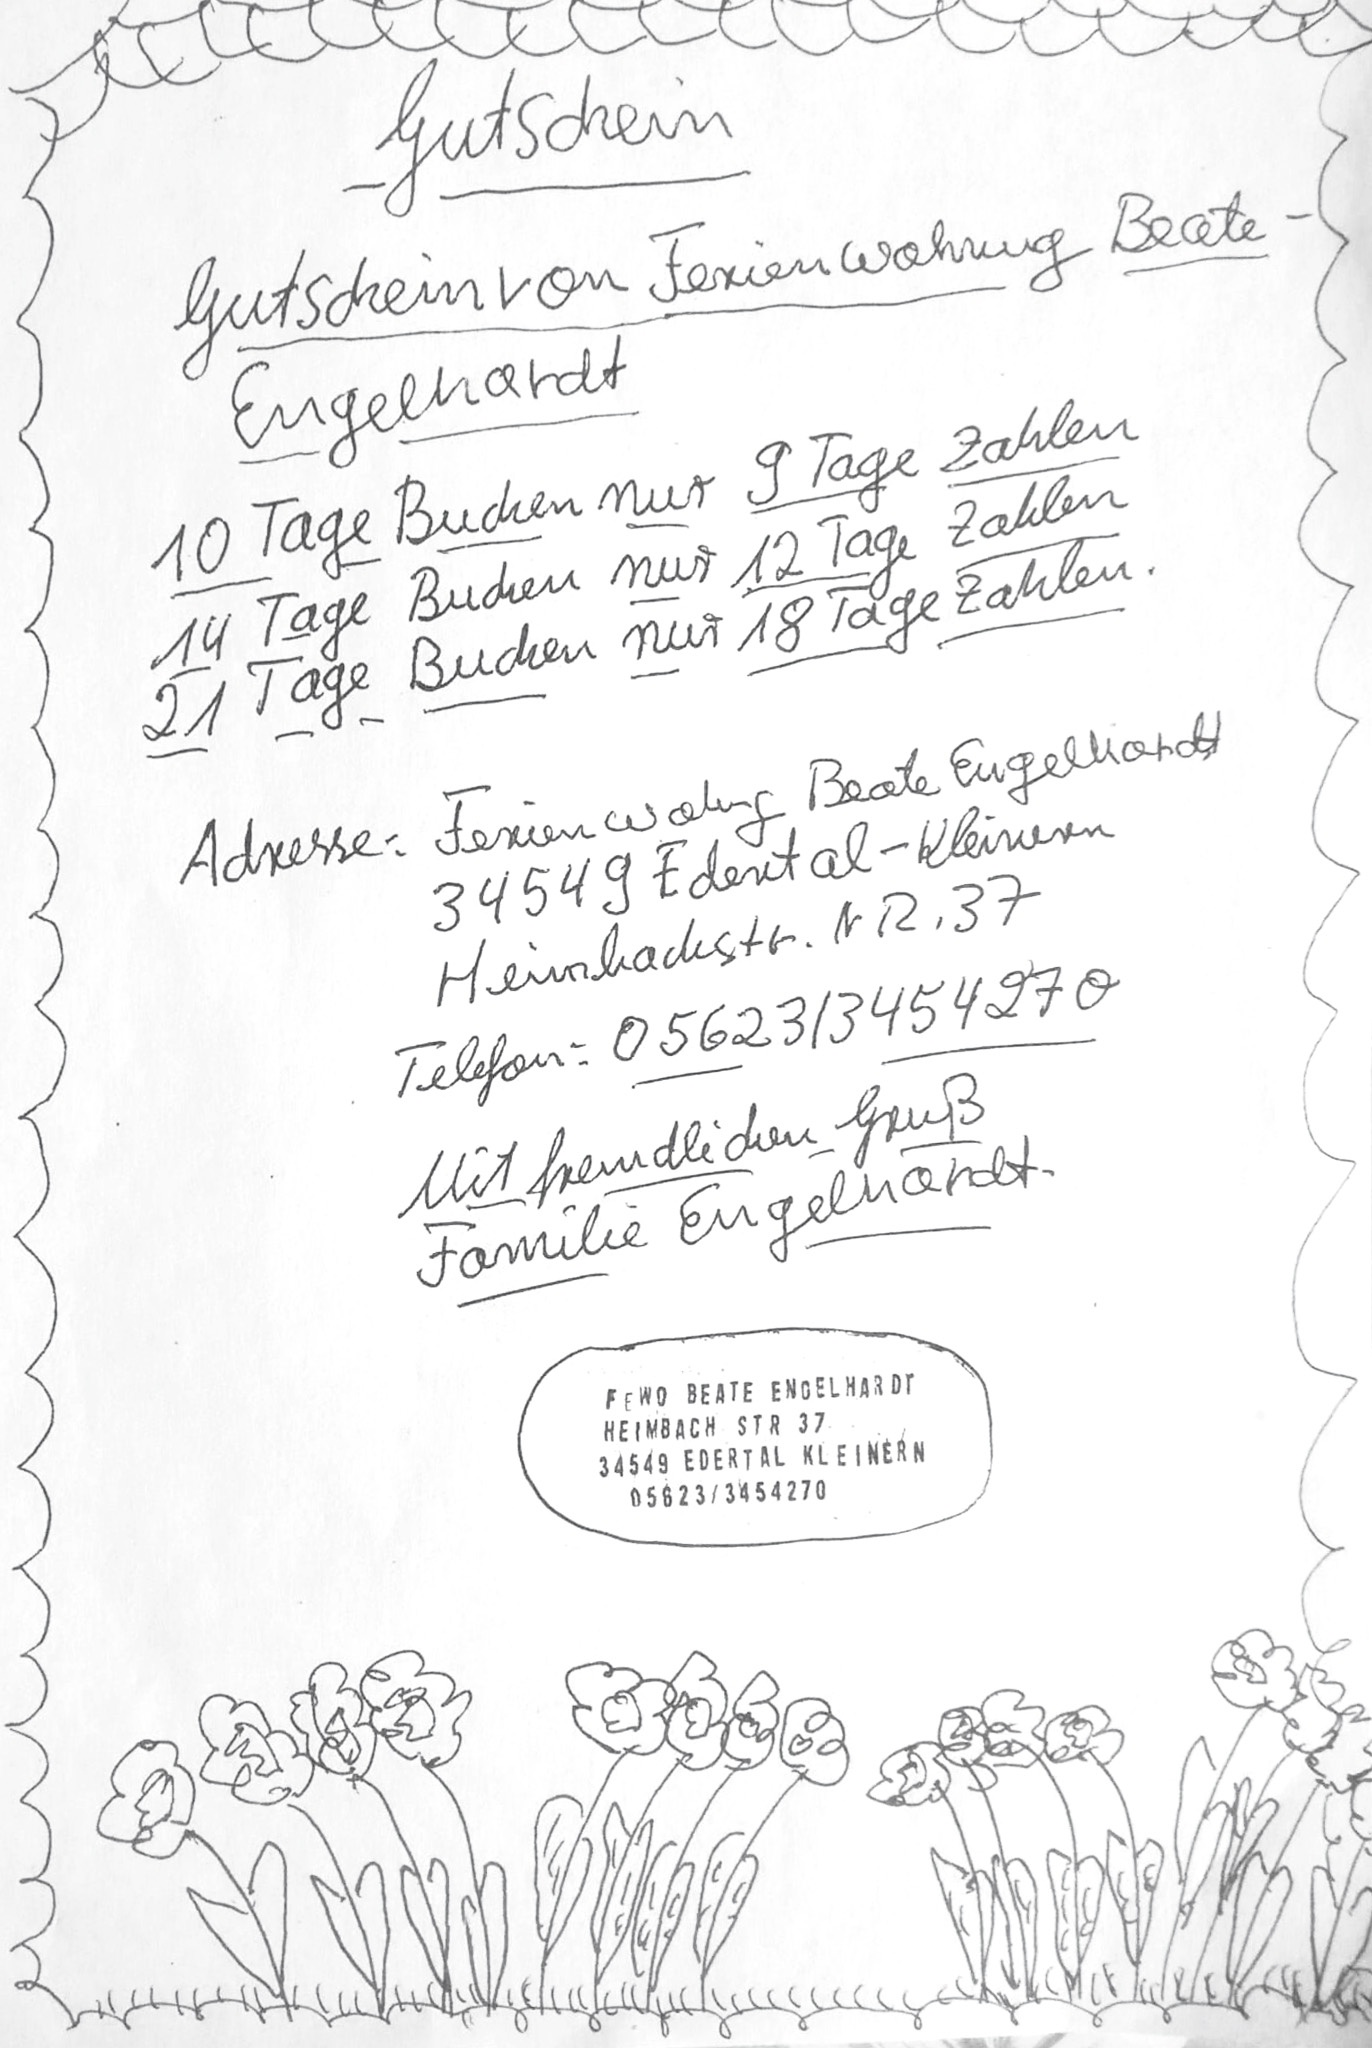 Gutschein
Gutschein von Ferienwohnung Beate-
Engelhardt
10 Tage Buchen nur 9 Tage Zahlen
14 Tage Buchen nur 12 Tage Zahlen
21 Tage Buchen nur 18 Tage Zahlen.
Adresse: Ferienwohng Beate Engelhardt
34549 Edertal-Kleinern
Heimbachstr. NR. 37
Telefon: 05623/3454270
Mit freundlichen Gruß
Familie Engelhardt-
FEWO BEATE ENGELHARDT
HEIMBACH STR 37
34549 EDERTAL KLEINERN
05623/3454270